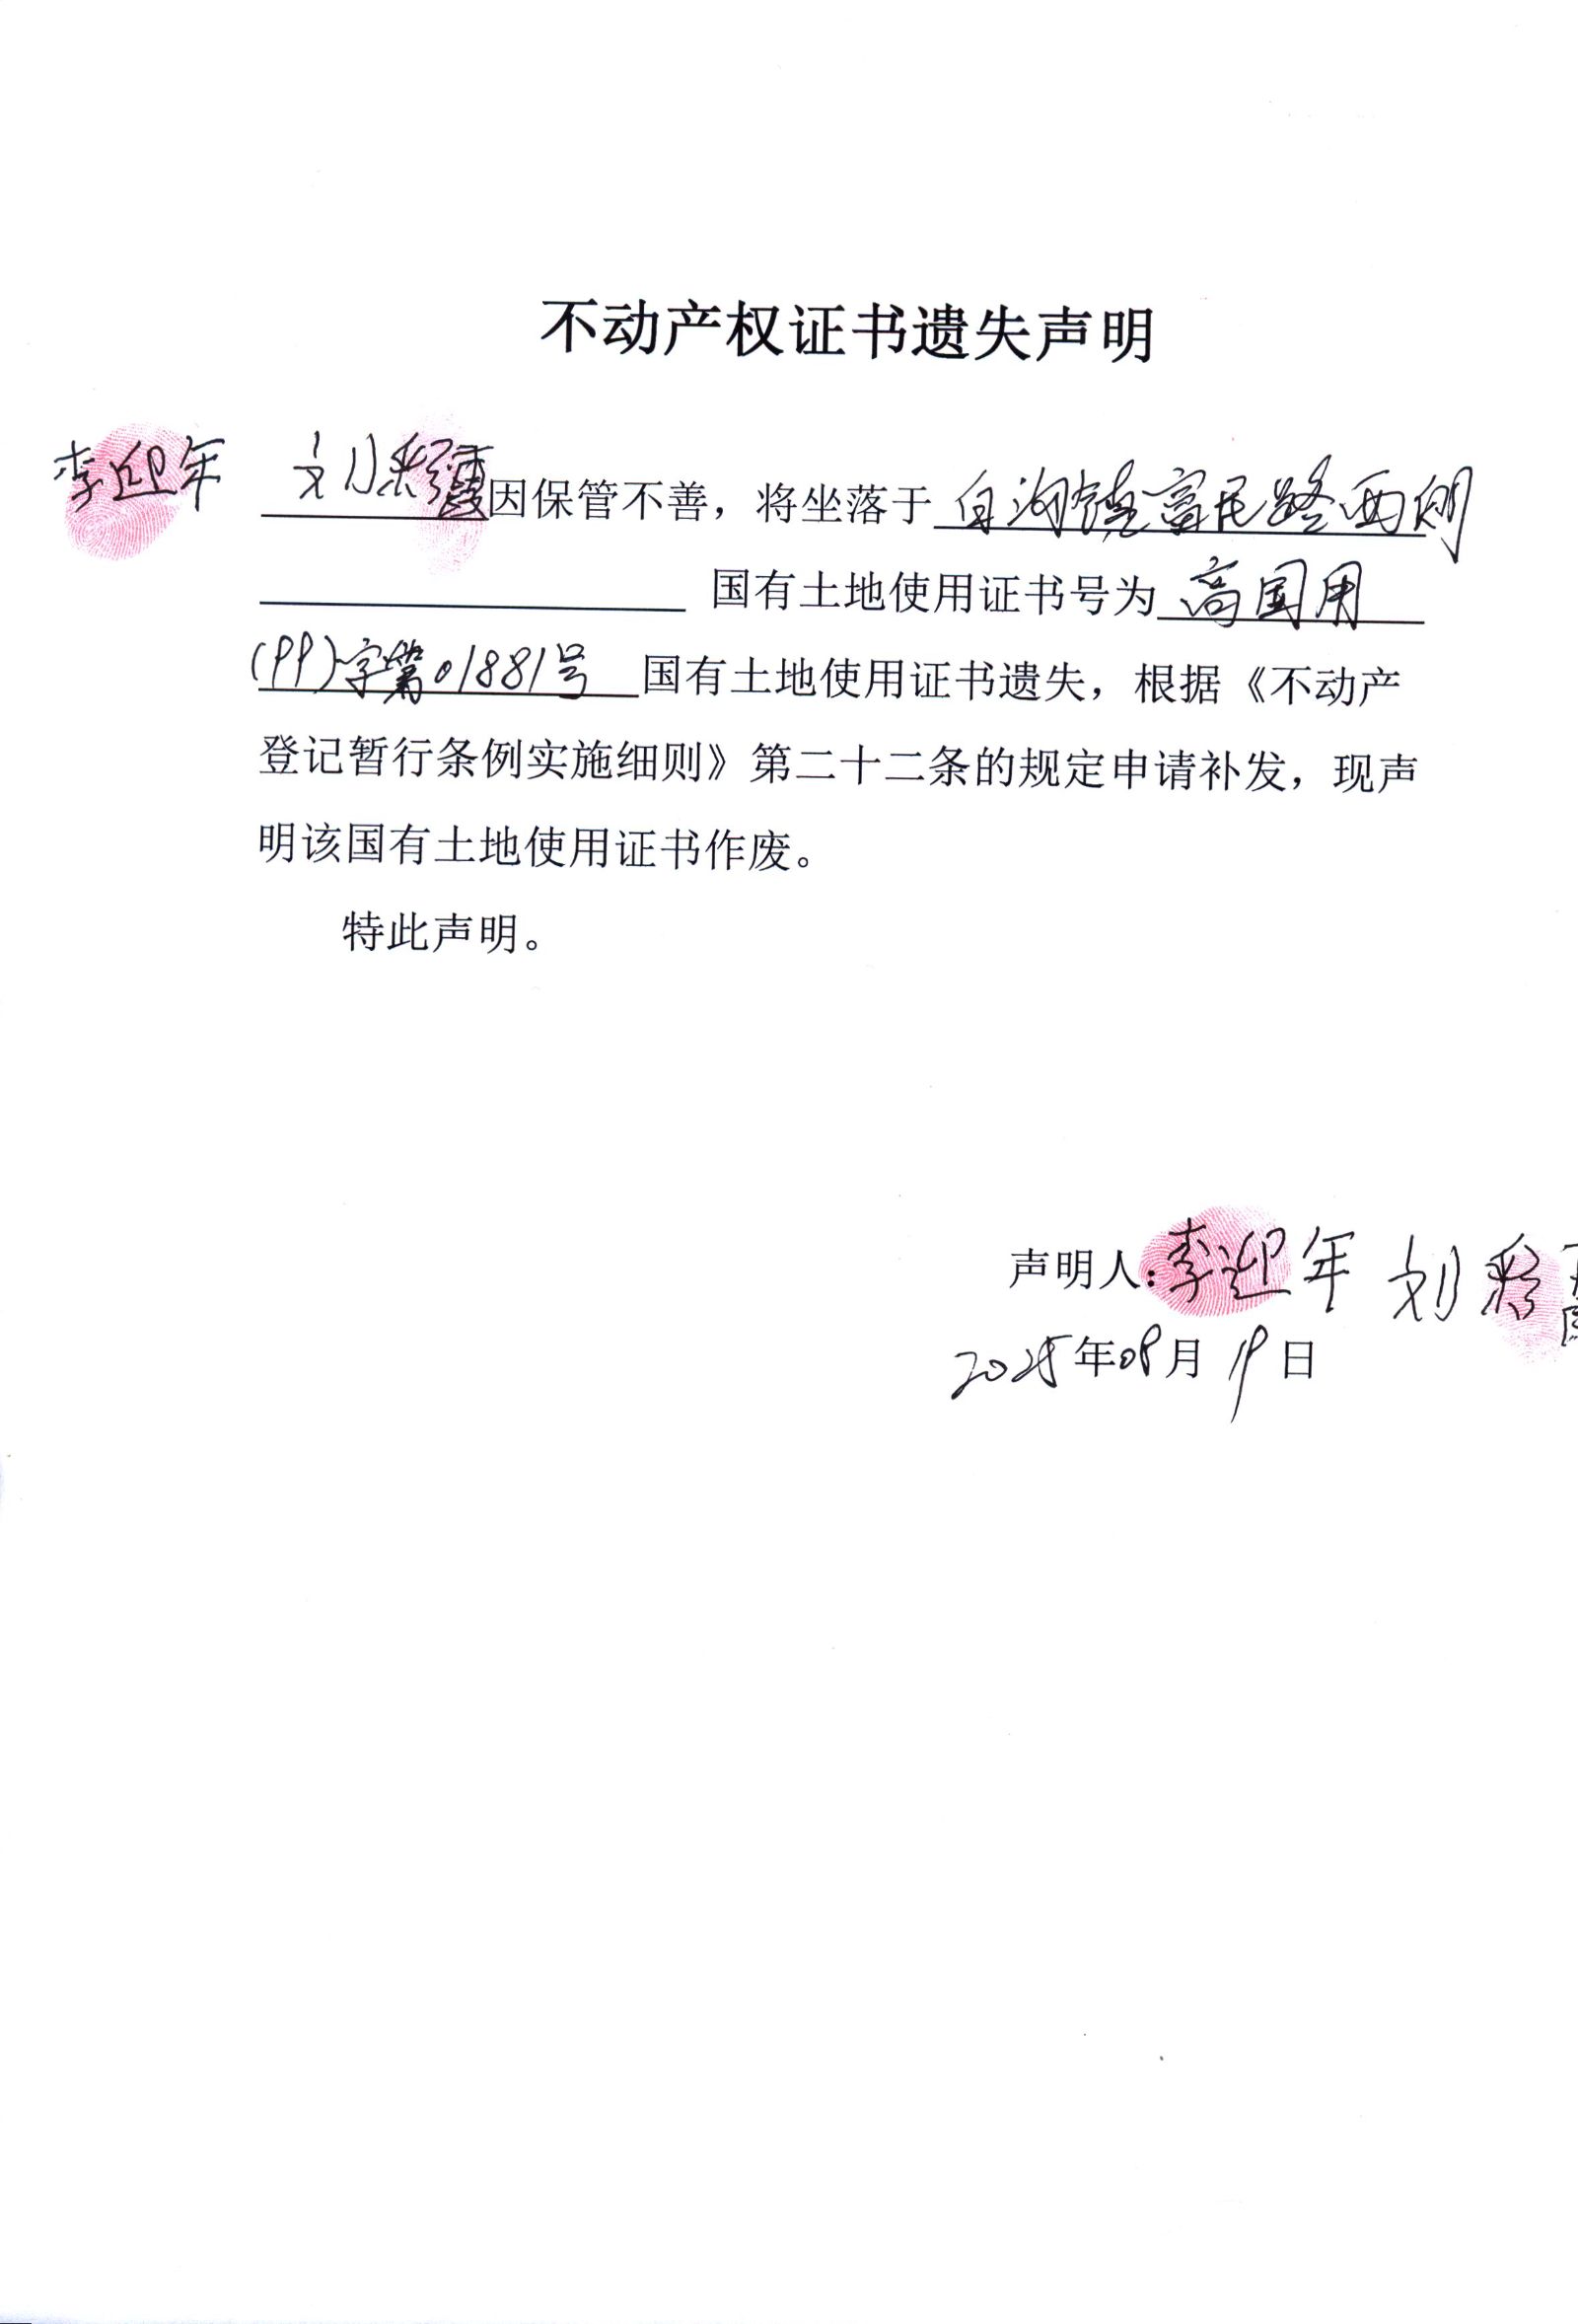 不动产权证书遗失声明
李迎年 刘彩霞因保管不善，将坐落于白沟镇富民路西侧
国有土地使用证书号为高国用
(99)字第01881号国有土地使用证书遗失，根据《不动产
登记暂行条例实施细则》第二十二条的规定申请补发，现声
明该国有土地使用证书作废。
特此声明。
声明人：李迎年 刘彩
2025年08月19日